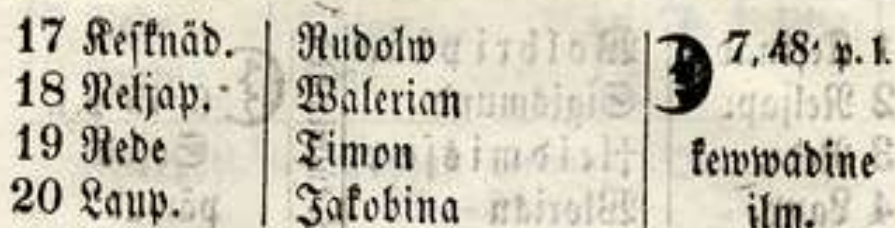 17 Keſknäd. Rudolw 7, 48' p. l.
18 Neljap. Walerian
19 Rede Timon kewwadine
20 Laup. Jakobina ilm.